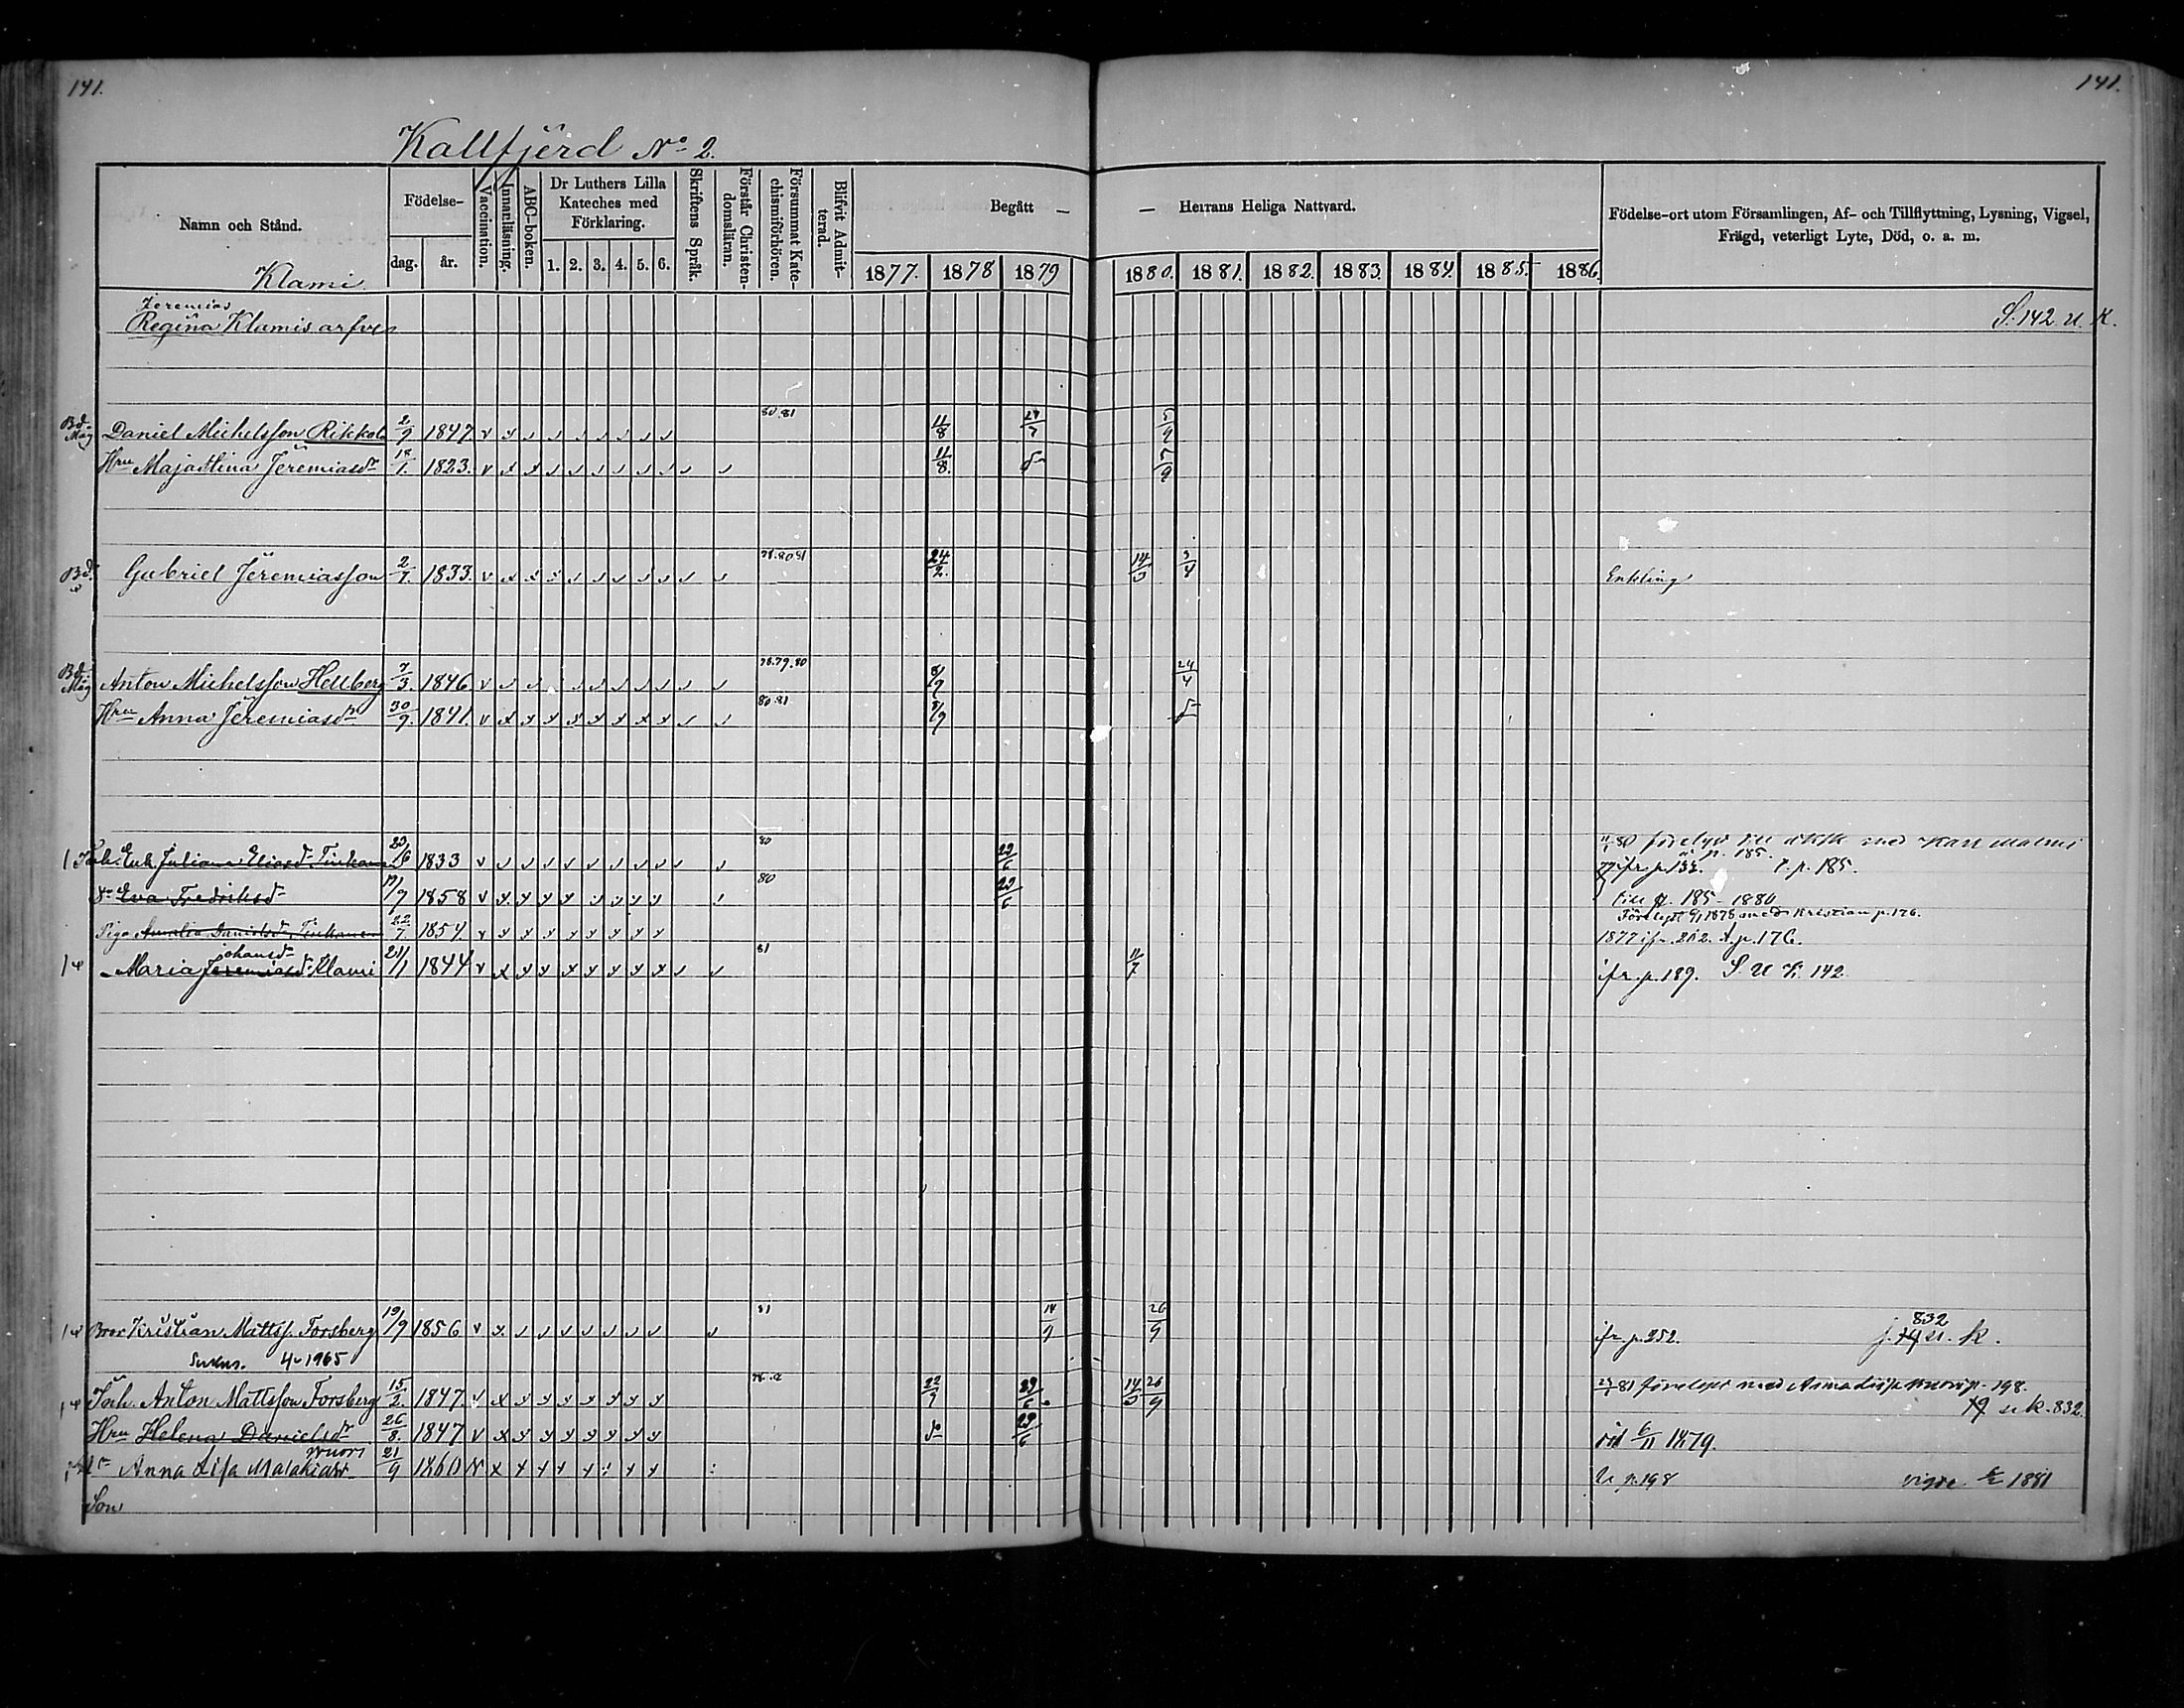 141.
141.
Kallfjerd No 2.
Namn och Stånd.
Födelse-
dag.
år.
Vaccination.
Innanläsning.
ABC-boken.
Dr Luthers Lilla
Kateches med
Förklaring.
1. 2. 3. 4. 5. 6.
Skriftens Språk.
Förstår Christen-
domsläran.
Försummat Kate-
chismiförhören.
Blifvit Admit-
terad.
Begått —
— Herrans Heliga Nattvard.
1877. 1878 1879 1880. 1881. 1882. 1883. 1884. 1885. 1886.
Födelse-ort utom Församlingen, Af- och Tillflyttning, Lysning, Vigsel,
Frägd, veterligt Lyte, Död, o. a. m.
Klami
Jeremias
Regina Klamis arfve
S. 142 u. K.
Bd. Måg Daniel Michelsson Rikkola 2/9 1847 80.81 11/8 5/9
Hru Maja Stina Jeremiasdr 18/1. 1823. 11/8. 5/9
Bd. Gabriel Jeremiasson 2/7. 1833. 78.80 81 24/2. 14/3 3/4 Enkling
Bd. Måg Anton Michelsson Hellberg 7/3. 1846 78.79.80 8/9 24/4
Hru Anna Jeremiasdr 30/9. 1841. 80.81 8/9
Enk. Juliana Eliasdr 1833 80 29/6
p. 185.
ifr. p. 132. p. 185.
Eva Fredriksdr 19/7 1858 80 29/6 till p. 185 - 1880
Förlyst 1878 med Kristian p. 176.
Piga Amalia Danielsdr 22/7. 1854. 1877 ifr. 212. p. 176.
Johansdr
Maria Jeremiasdr Klami 21/1 1844 81 11/7 ifr. p. 189. S. U K. 142.
Bror Kristian Mattss. Forsberg 19/9 1856 81 14/9 26/9 ifr. p. 252. 832
u. k.
1965
Anton Mattsson Forsberg 15/2. 1847. 22/9 29/6 14/3 26/9 förlyst med p. 198.
u k. 832.
Hru Helena Danielsdr 26/8. 1847 29/6 död 6/11 1879.
Anna Lisa Malakiasdr 21/9 1860 p. 198 vigde 1881
Son